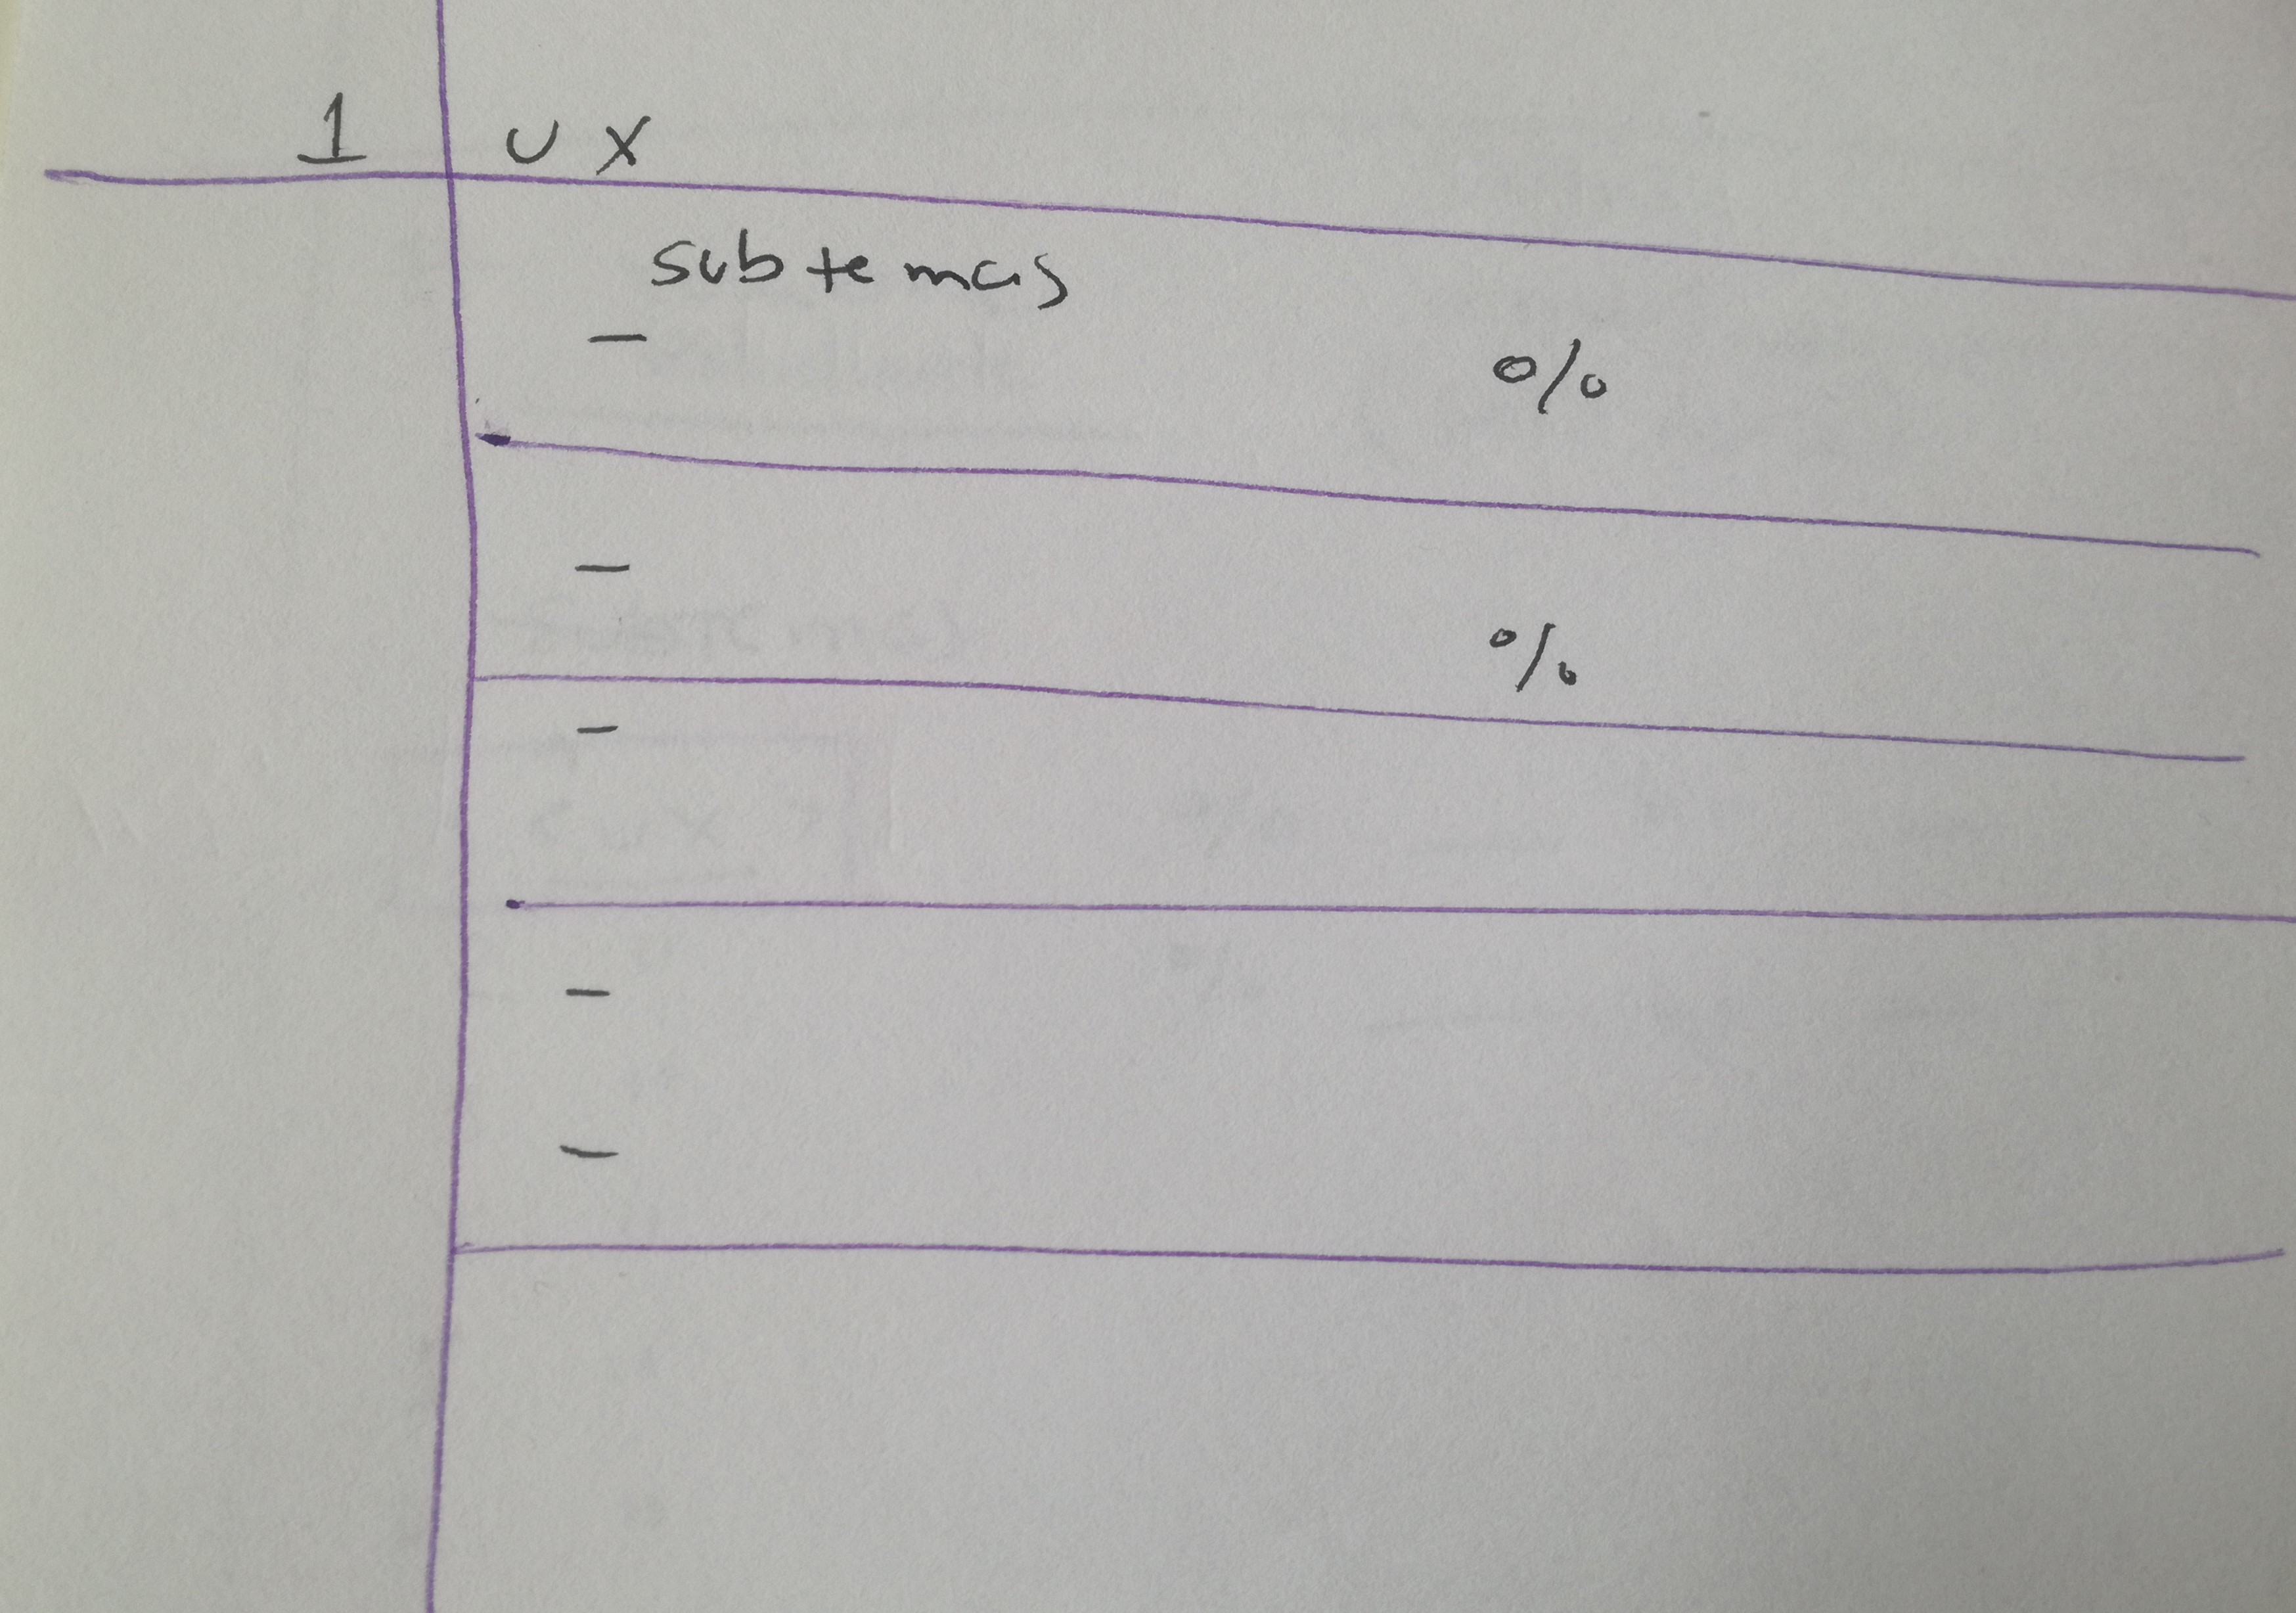 1 UX
subtemas
-
%
-
%
-
-
-